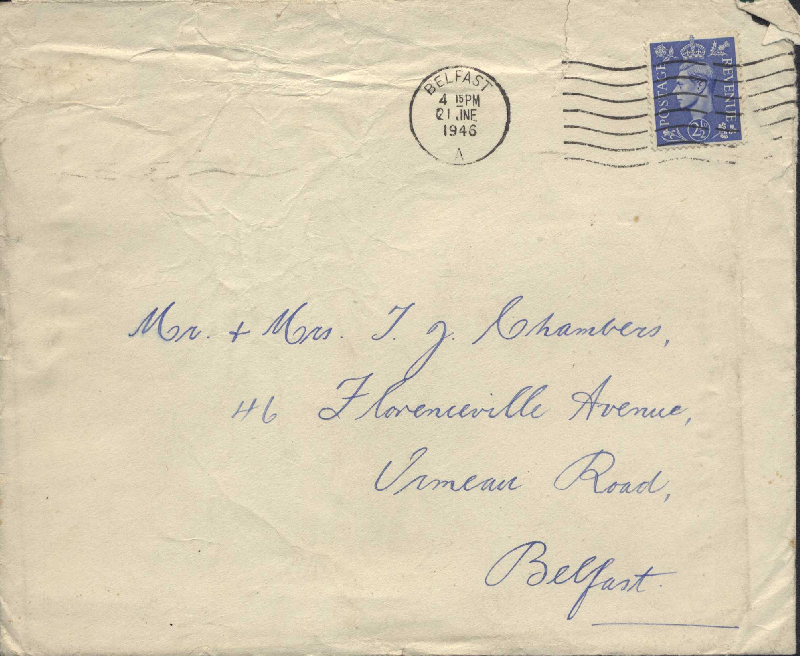 BELFAST
4 15 PM
21 JNE
1946
A
POSTAGE REVENUE
2½D
Mr. + Mrs. T. J. Chambers,
46 Florenceville Avenue,
Ormeau Road,
Belfast.